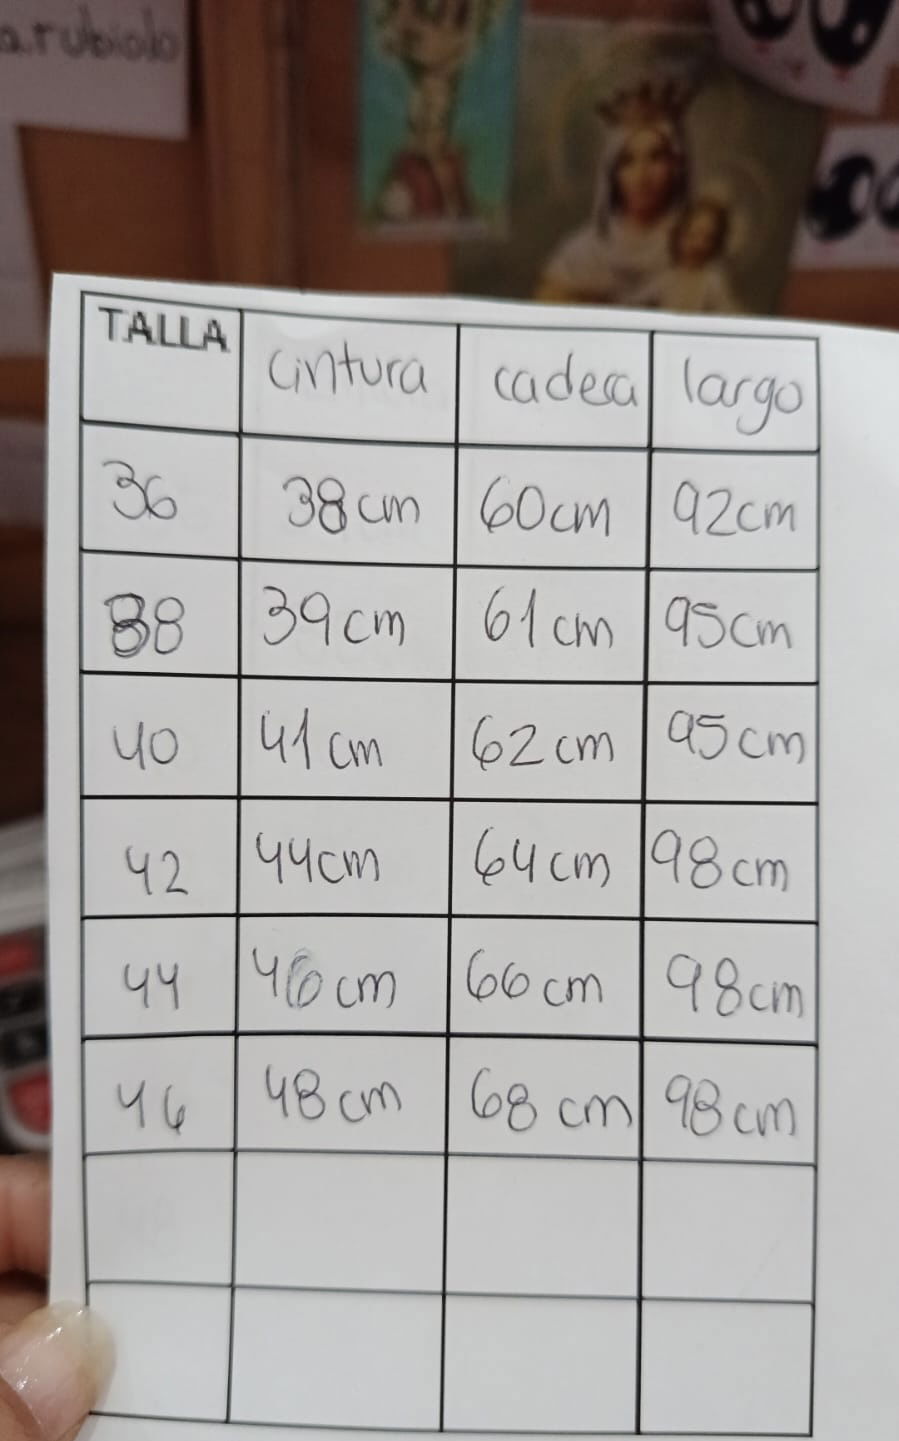 a.rubiolo
TALLA cintura cadera largo
36 38cm 60cm 92cm
38 39cm 61cm 95cm
40 41cm 62cm 95cm
42 44cm 64cm 98cm
44 46cm 66cm 98cm
46 48cm 68cm 98cm